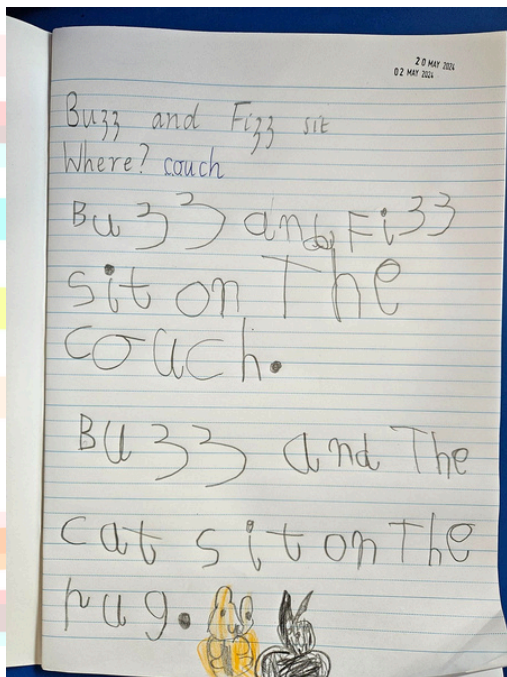 20 MAY 2024
02 MAY 2024
Buzz and Fizz sit
Where? couch
Buzz and Fizz
sit on The
couch.
Buzz and The
cat sit on The
rug.